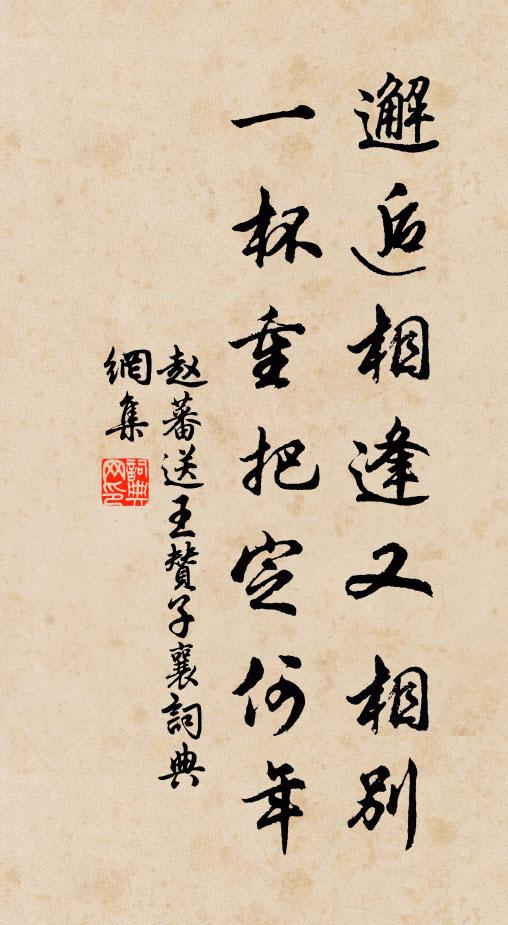 邂逅相逢又相別
一杯重把定何年
赵蕃送王賛子襄詞典
網集
詞典
网印